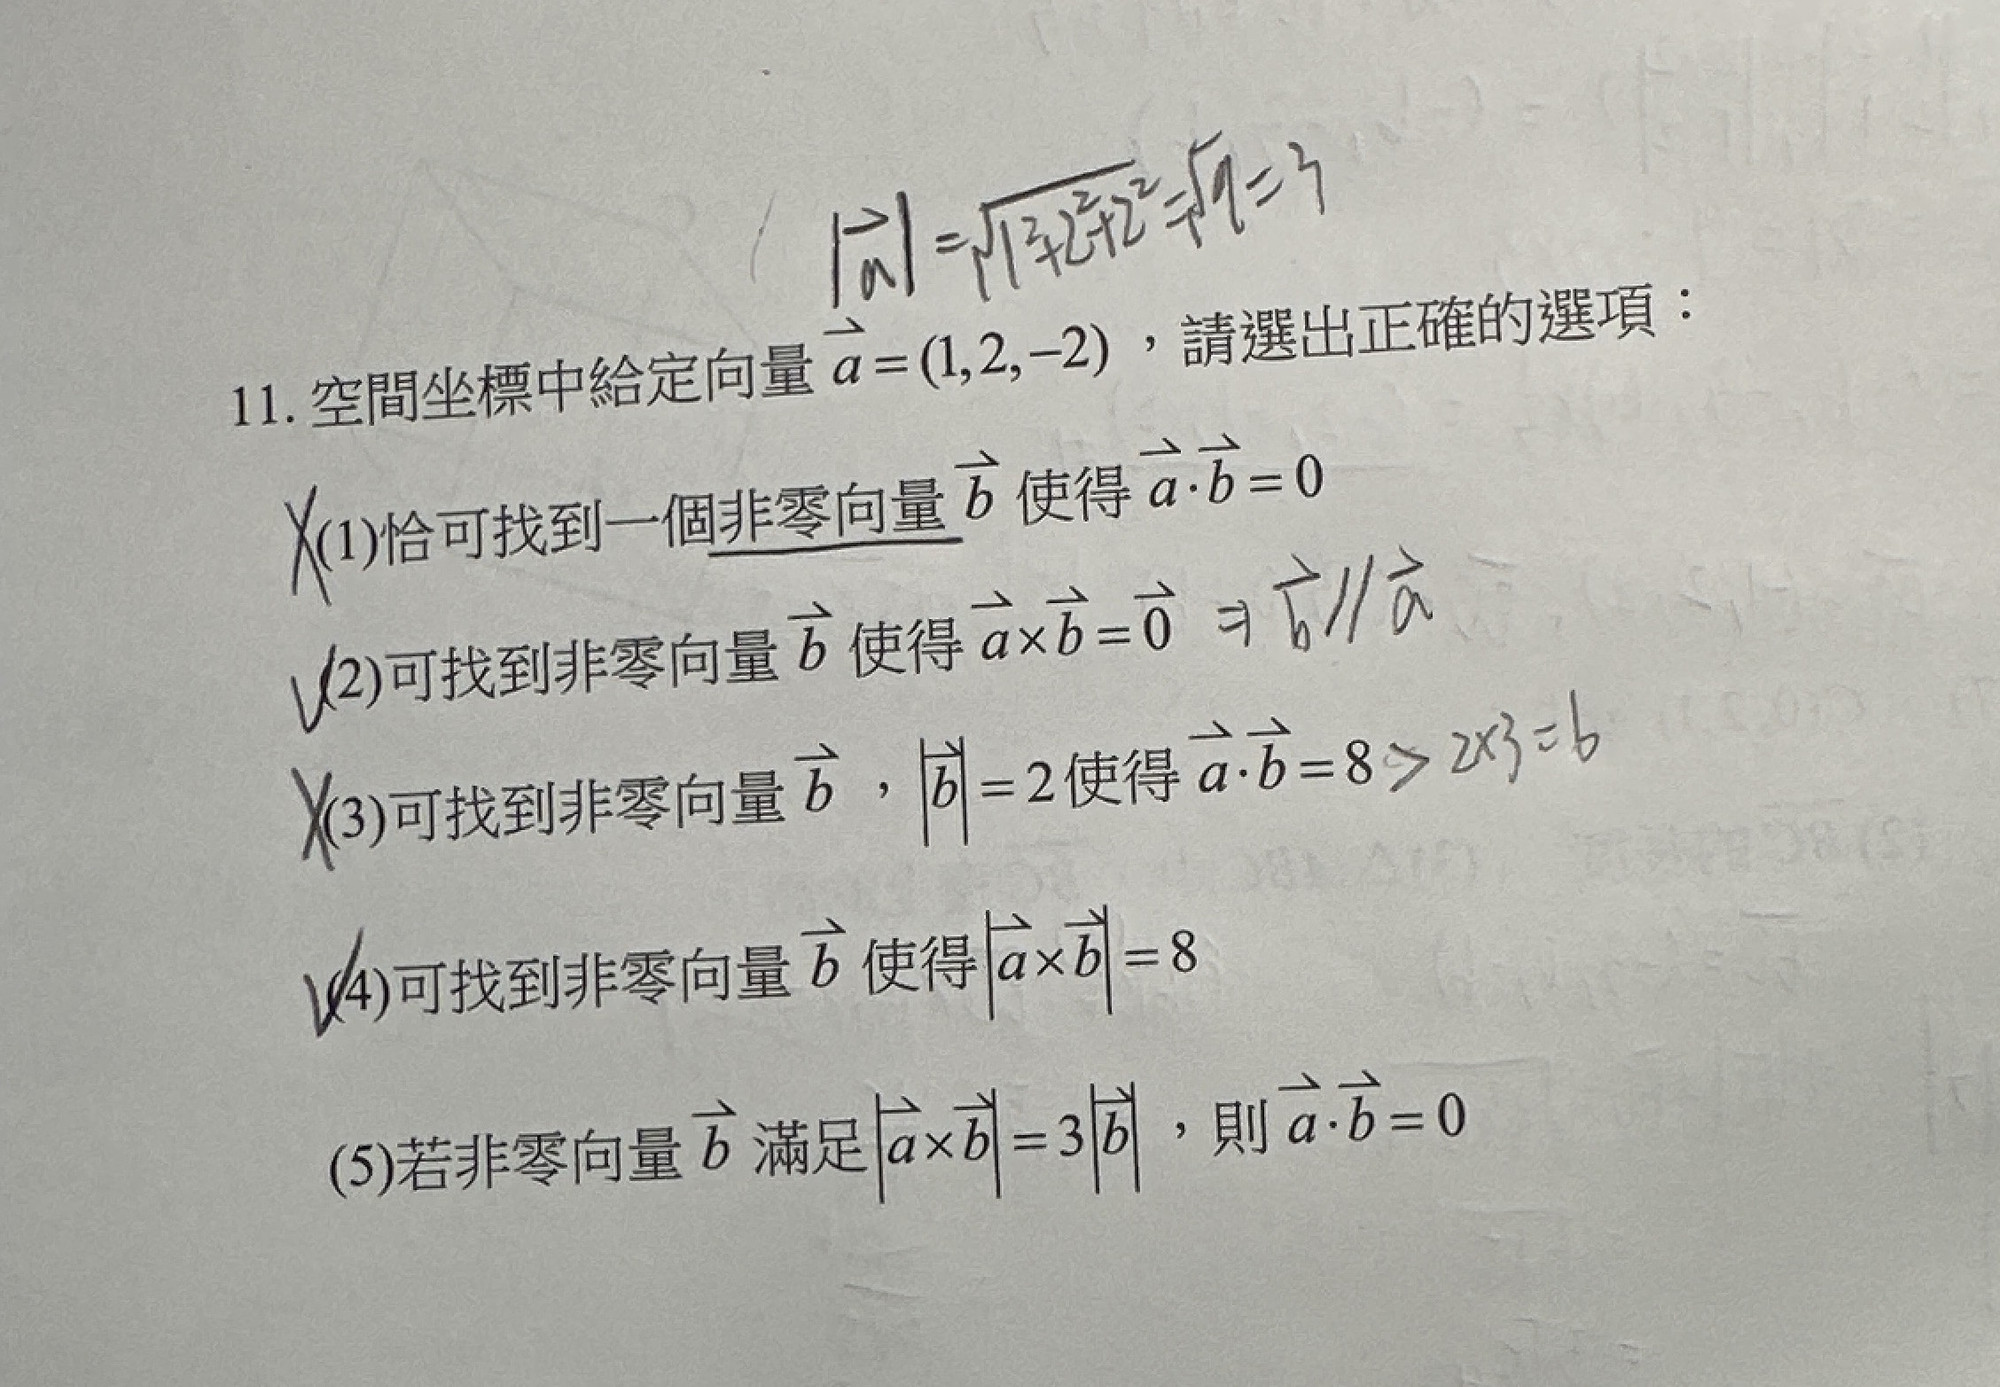 |a⃗| = √1²+2²+2² = √9 = 3
11. 空間坐標中給定向量 a⃗ = (1, 2, −2) ，請選出正確的選項：
(1)恰可找到一個非零向量 b⃗ 使得 a⃗ · b⃗ = 0
(2)可找到非零向量 b⃗ 使得 a⃗ × b⃗ = 0⃗ ⇒ b⃗ // a⃗
(3)可找到非零向量 b⃗ ，|b⃗| = 2 使得 a⃗ · b⃗ = 8 > 2×3 = 6
(4)可找到非零向量 b⃗ 使得 |a⃗ × b⃗| = 8
(5)若非零向量 b⃗ 滿足 |a⃗ × b⃗| = 3|b⃗| ，則 a⃗ · b⃗ = 0